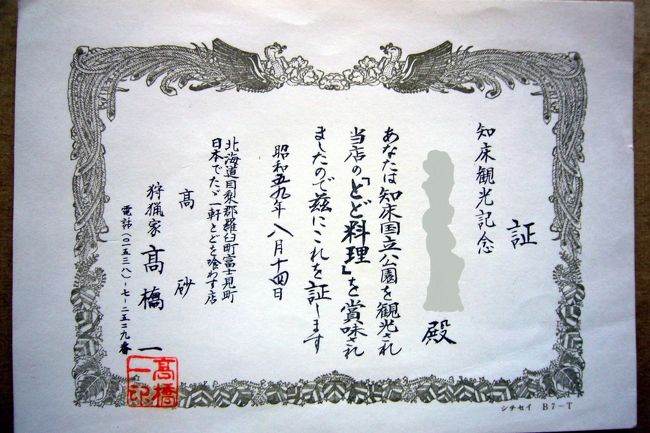 証
知床観光記念
殿
あなたは知床国立公園を観光され
当店の「とど料理」を賞味され
ましたので茲にこれを証します
昭和五九年八月十四日
北海道目梨郡羅臼町富士見町
日本でたゞ一軒とどを喰わす店
高砂
狩猟家 髙橋一
電話(〇一五三八)-七-二五二九番
髙橋一記
シチセイ B7-T